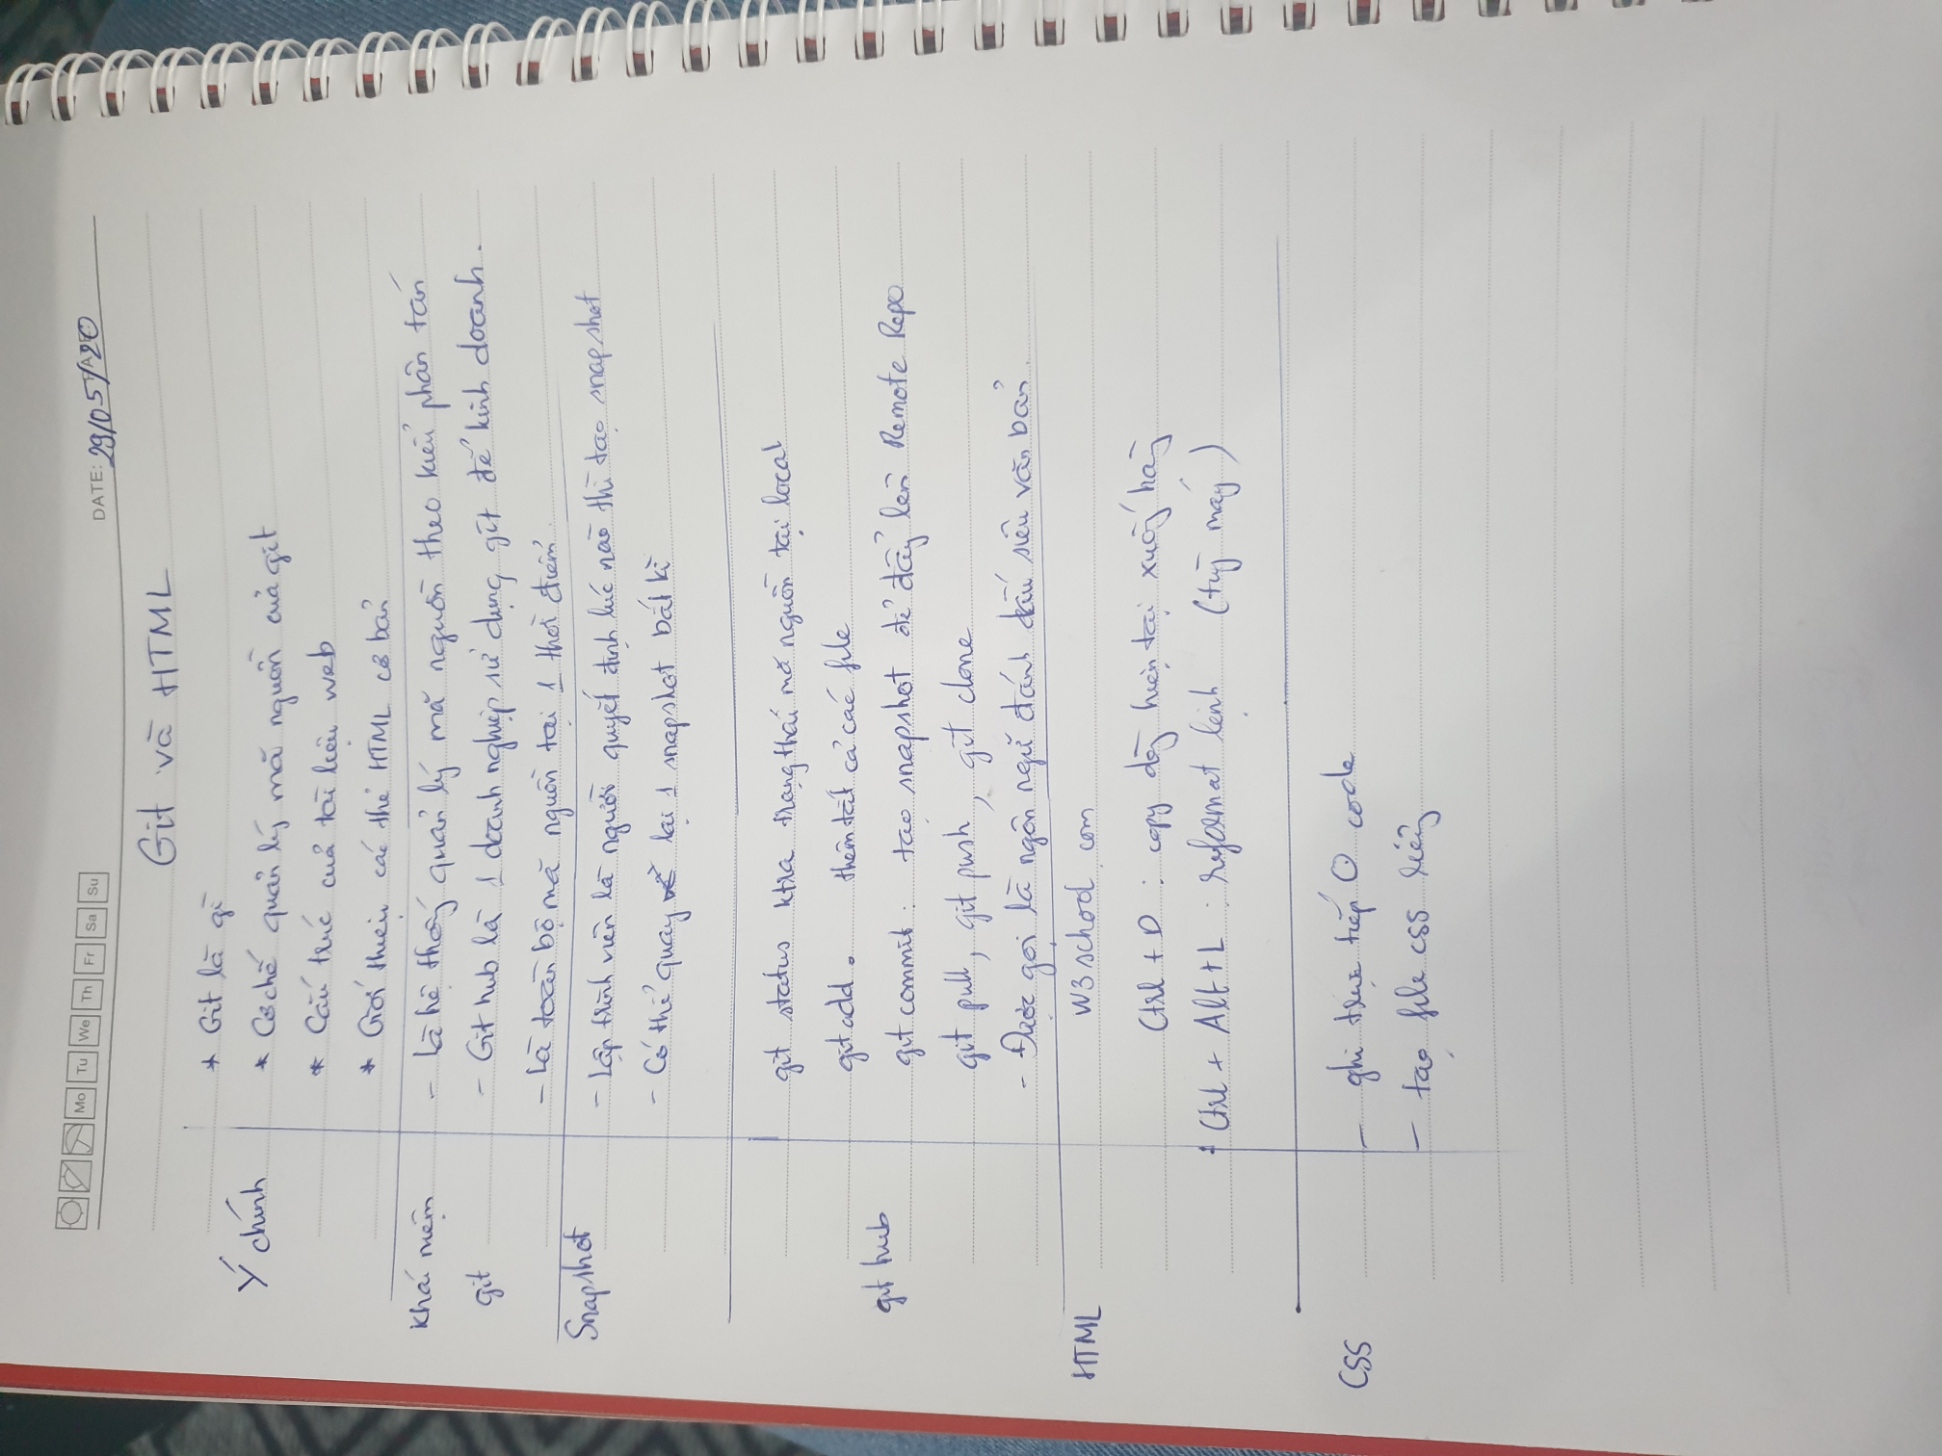 Mo Tu We Th Fr Sa Su
DATE: 29/05/20
Git và HTML
Ý chính
* Git là gì
* Cơ chế quản lý mã nguồn của git
* Cấu trúc của tài liệu web
* Giới thiệu các thẻ HTML cơ bản
Khái niệm
git
- Là hệ thống quản lý mã nguồn theo kiểu phân tán
- Git hub là 1 doanh nghiệp sử dụng git để kinh doanh.
- Là toàn bộ mã nguồn tại 1 thời điểm.
Snapshot
- Lập trình viên là người quyết định lúc nào thì tạo snapshot
- Có thể quay lại 1 snapshot bất kì
git hub
git status ktra trạng thái mã nguồn tại local
git add . thêm tất cả các file
git commit : tạo snapshot để đẩy lên Remote Repo
git pull, git push, git clone
- Được gọi là ngôn ngữ đánh dấu siêu văn bản.
HTML
W3school.com
Ctrl + D : copy dòng hiện tại xuống hàng
Ctrl + Alt + L : reformat lệnh (tuỳ máy)
CSS
- ghi trực tiếp O code
- tạo file css riêng